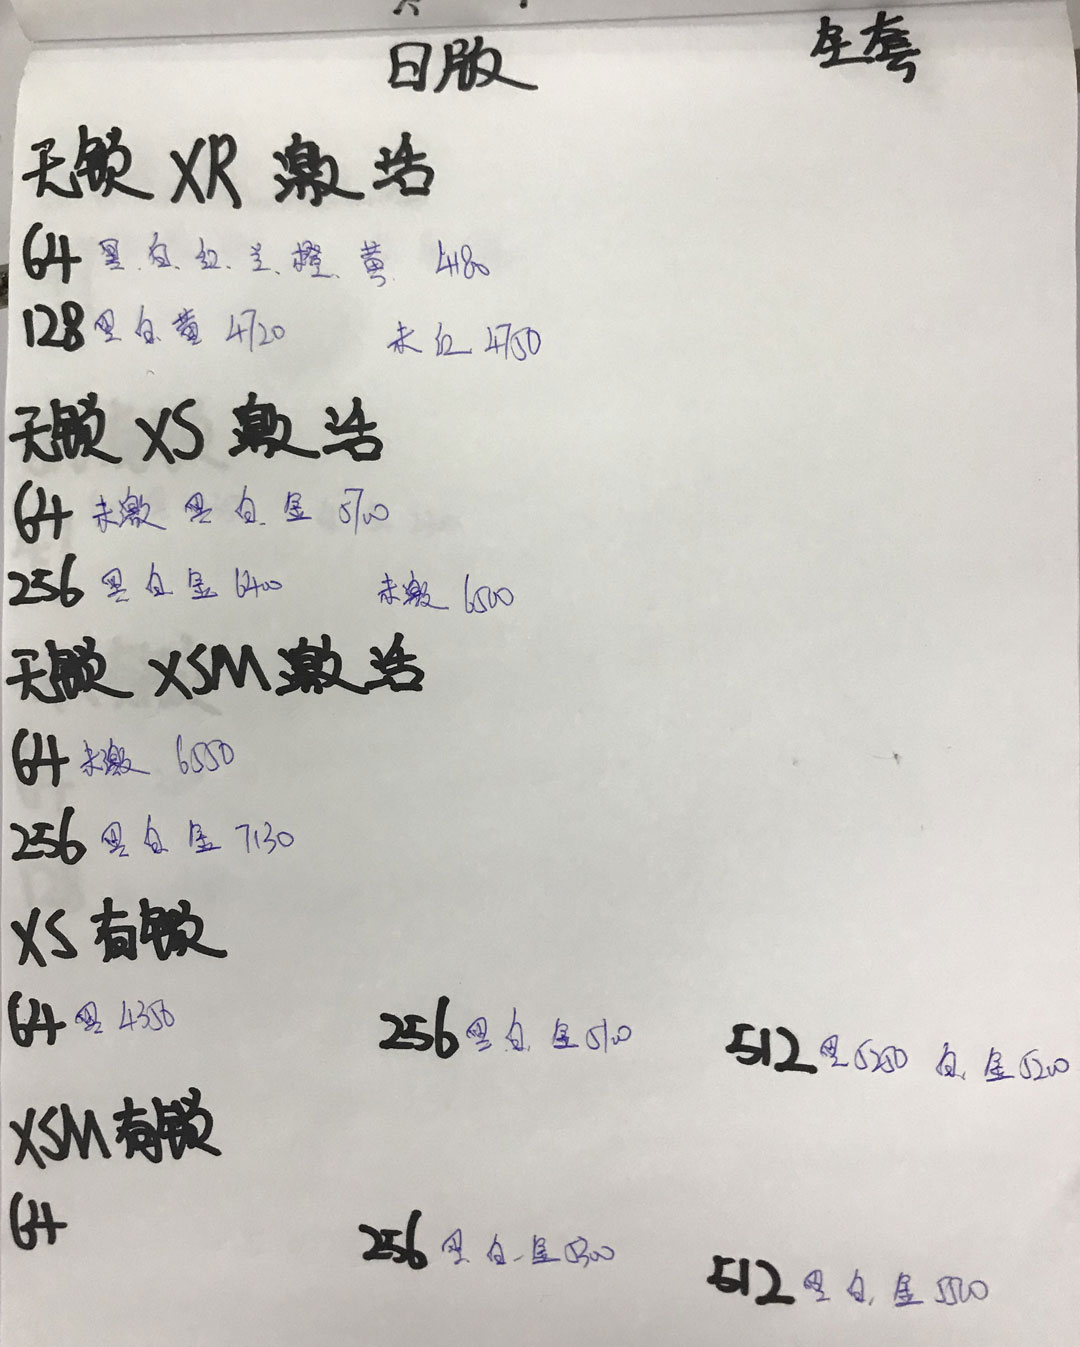 日版 全套
无锁 XR 激活
64 黑.白.红.兰.橙.黄. 4480
128 黑 白 黄 4720 未 红 4750
无锁 XS 激活
64 未激 黑 白. 金 5700
256 黑 白 金 6400 未激 6500
无锁 XSM 激活
64 未激 6550
256 黑 白 金 7130
XS 有锁
64 黑 4350 256 黑 白. 金 5100 512 黑 5250 白. 金 5200
XSM 有锁
64 256 黑 白. 金 5300 512 黑 白. 金 5500